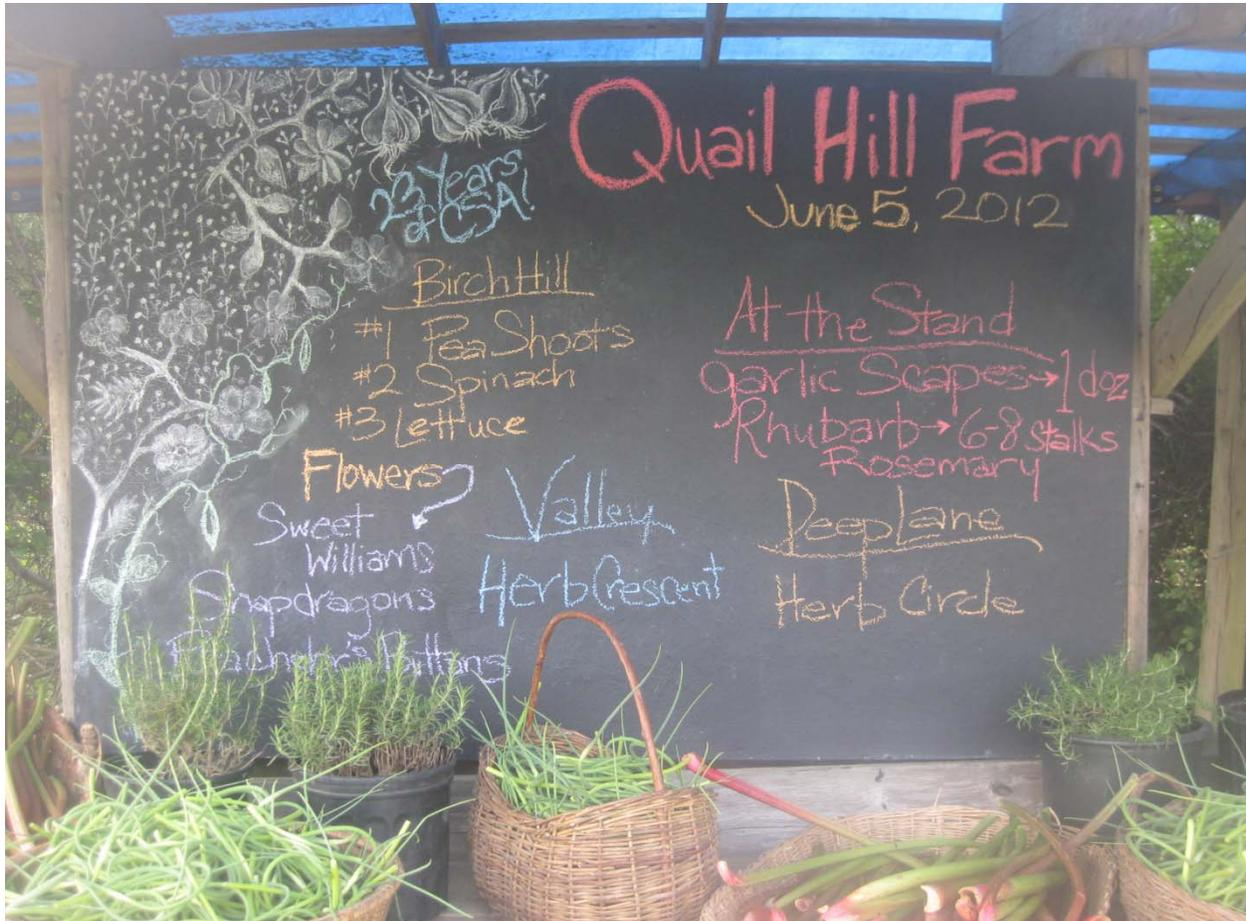 Quail Hill Farm
June 5, 2012
23 Years
of CSA!
Birch Hill
#1 Pea Shoots
#2 Spinach
#3 Lettuce
Flowers
Sweet
Williams
Snapdragons
Bachelor's Buttons
Valley
Herb Crescent
At the Stand
garlic Scapes→1 doz
Rhubarb→6-8 stalks
Rosemary
Deep Lane
Herb Circle